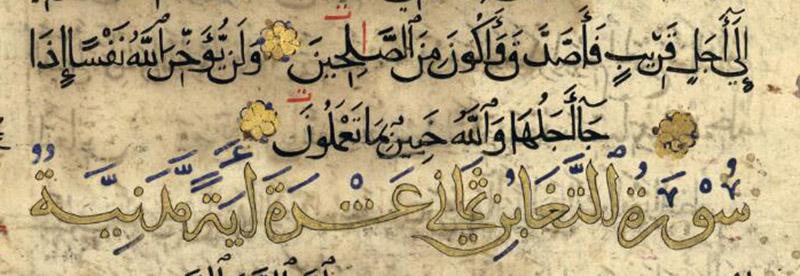 إِلَىٰٓ أَجَلٍ قَرِيبٍ فَأَصَّدَّقَ وَأَكُونَ مِنَ ٱلصَّـٰلِحِينَ وَلَن يُؤَخِّرَ ٱللَّهُ نَفْسًا إِذَا
جَآءَ أَجَلُهَا وَٱللَّهُ خَبِيرٌ بِمَا تَعْمَلُونَ
سُوْرَةُ ٱلتَّغَابُنِ ثَمَانِي عَشْرَةَ اٰيَةً مَّدَنِيَّةٌ